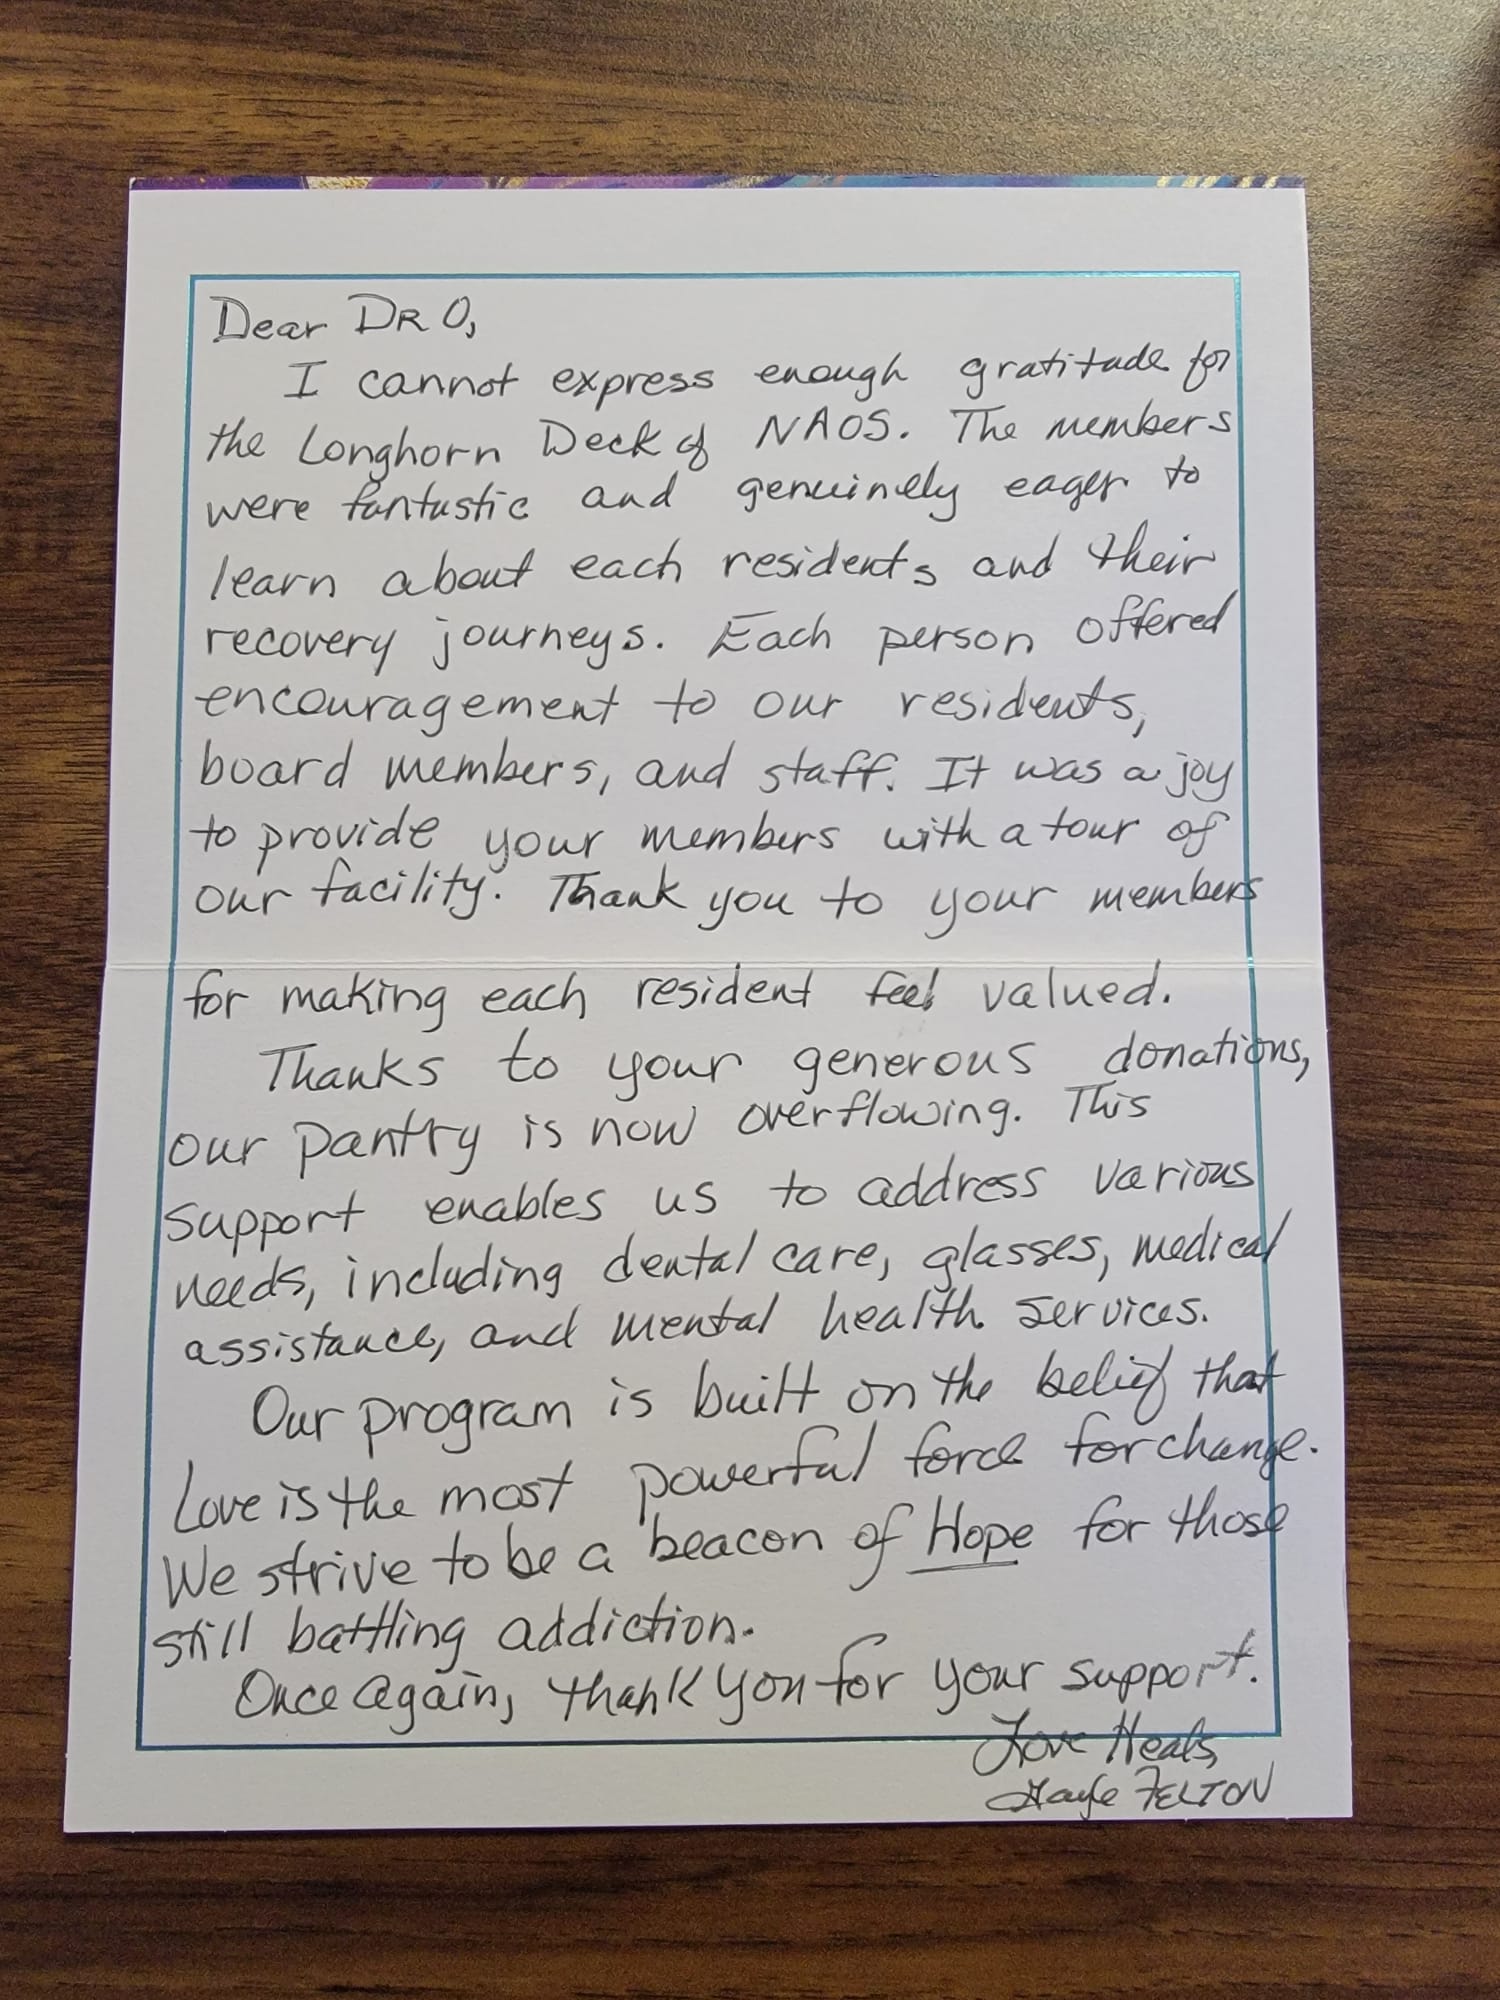 Dear DR O,
I cannot express enough gratitude for
the Longhorn Deck of NAOS. The members
were fantastic and genuinely eager to
learn about each residents and their
recovery journeys. Each person offered
encouragement to our residents,
board members, and staff. It was a joy
to provide your members with a tour of
our facility. Thank you to your members
for making each resident feel valued.
Thanks to your generous donations,
our pantry is now overflowing. This
support enables us to address various
needs, including dental care, glasses, medical
assistance, and mental health services.
Our program is built on the belief that
Love is the most powerful force for change.
We strive to be a beacon of Hope for those
still battling addiction.
Once again, thank you for your support.
Love Heals,
Gayle FELTON